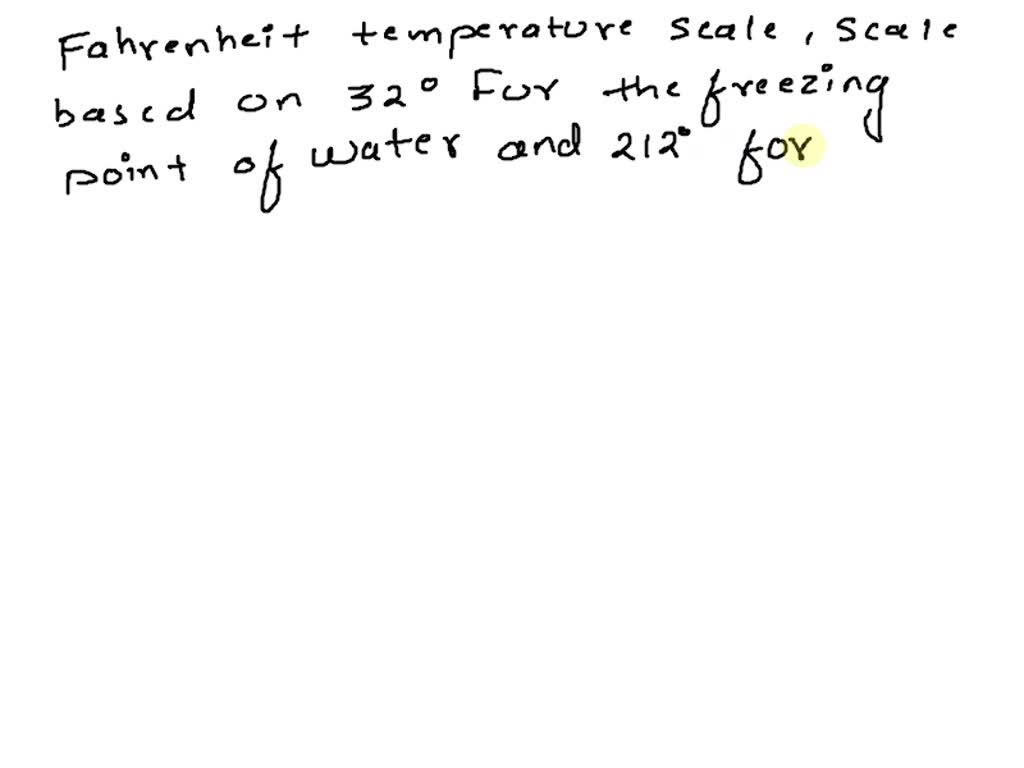 Fahrenheit temperature scale, scale
based on 32° For the freezing
point of water and 212° for